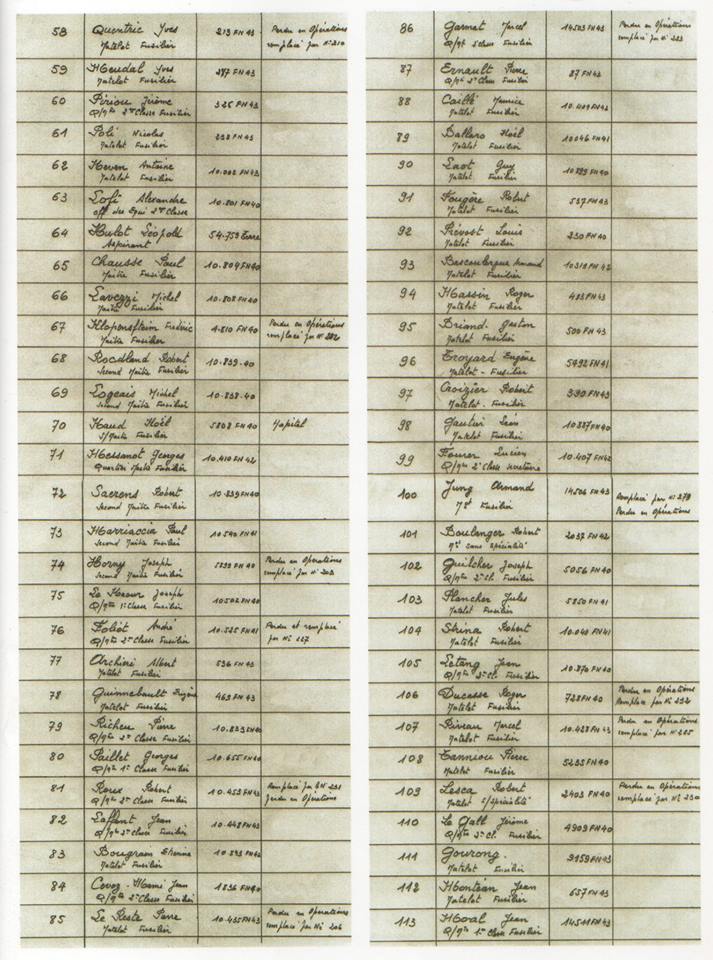 58 Quentric Yves 213 FN 43 Perdu en Opérations
Matelot Fusilier remplacé par N° 210
59 Heudal Yves 287 FN 43
Matelot Fusilier
60 Périou Jérôme 325 FN 43
Q/Mtre 2me Classe Fusilier
61 Poli Nicolas 238 FN 43
Matelot Fusilier
62 Heven Antoine 10.002 FN 43
Matelot Fusilier
63 Lofi Alexandre 10.801 FN 40
off des Equi 2me Classe
64 Hulot Léopold 54.759 Terre
Aspirant
65 Chausse Paul 10.804 FN 40
Maitre Fusilier
66 Lavezzi Michel 10.808 FN 40
Maitre Fusilier
67 Klopfenstein Frédéric 4.810 FN 40 Perdu en Opérations
Maitre Fusilier remplacé par N° 282
68 Roodland Robert 10.839.40
Second Maitre Fusilier
69 Logeais Michel 10.838.40
Second Maitre Fusilier
70 Haud Noël 5808 FN 40 Hopital
S/Maitre Fusilier
71 Messanot Georges 10.410 FN 42
Quartier Maitre Fusilier
72 Sacrens Robert 10.339 FN 40
Second Maitre Fusilier
73 Marriaccia Paul 10.540 FN 41
Second Maitre Fusilier
74 Horny Joseph 5239 FN 40 Perdu en Opérations
Second Maitre Fusilier remplacé par N° 203
75 Le Heour Joseph 10502 FN 40
Q/Mtre 1re Classe Fusilier
76 Foliot André 10.525 FN 41 Perdu et remplacé
Q/Mtre 2me Classe Fusilier par N° 227
77 Archieri Albert 536 FN 43
Matelot Fusilier
78 Guinnebault Eugène 463 FN 43
Matelot Fusilier
79 Richeu Pierre 10.823 FN 40
Q/Mtre 2me Classe Fusilier
80 Paillet Georges 10.655 FN 40
Q/Mtre 1re Classe Fusilier
81 Roux Robert 10.453 FN 43 Remplacé par N° 231
Q/Mtre 2me Classe Fusilier Perdu en Opérations
82 Laffont Jean 10.448 FN 43
Q/Mtre 2me Classe Fusilier
83 Bougrain Etienne 10.593 FN 42
Matelot Fusilier
84 Covoz-Mami Jean 1836 FN 40
Q/Mtre 2me Classe Fusilier
85 Le Reste Pierre 10.435 FN 43 Perdu en Opérations
Matelot Fusilier remplacé par N° 206
86 Garmat Marcel 14503 FN 43 Perdu en Opérations
Q/Mt Fusilier remplacé par N° 283
87 Ernault Pierre 87 FN 43
Q/Mtre 2me Classe Fusilier
88 Caillé Maurice 10.409 FN 43
Matelot Fusilier
89 Ballaro Noël 10046 FN 41
Matelot Fusilier
90 Enot Guy 10.899 FN 40
Matelot Fusilier
91 Fougère Robert 537 FN 43
Matelot Fusilier
92 Prévost Louis 230 FN 40
Matelot Fusilier
93 Bascoulergue Armand 10319 FN 42
Matelot Fusilier
94 Massin Roger 483 FN 43
Matelot Fusilier
95 Briand Gaston 500 FN 43
Matelot Fusilier
96 Troyard Eugène 5492 FN 41
Matelot - Fusilier
97 Croizier Robert 390 FN 43
Matelot - Fusilier
98 Gautier Léon 10887 FN 40
Matelot Fusilier
99 Fourer Lucien 10.407 FN 42
Q/Mtre 2e Classe Secretaire
100 Jung Armand 14506 FN 43 Remplacé par N° 279
Mt Fusilier Perdu en Opérations
101 Boulanger Robert 2037 FN 42
Mt sans Spécialité
102 Guilcher Joseph 5056 FN 40
Q/Mtre 2me Cl. Fusilier
103 Plancher Jules 5850 FN 41
Matelot Fusilier
104 Strina Robert 10.040 FN 41
Matelot Fusilier
105 Letang Jean 10.870 FN 40
Q/Mtre 2me Cl. Fusilier
106 Ducasse Roger 728 FN 40 Perdu en Opérations
Matelot Fusilier Remplacé par N° 292
107 Riveau Marcel 10.428 FN 43 Perdu en Opérations
Matelot Fusilier remplacé par N° 265
108 Tanniou Pierre 5235 FN 40
Matelot Fusilier
109 Lesca Robert 2403 FN 40 Perdu en Opérations
Matelot S/Spécialité remplacé par N° 230
110 Le Gall Jérôme 4909 FN 40
Q/Mtre 2e Cl. Fusilier
111 Gourong. 9159 FN 43
Matelot Fusilier
112 Montean Jean 657 FN 43
Matelot Fusilier
113 Moal Jean 14511 FN 43
Q/Mtre 1re Classe Fusilier